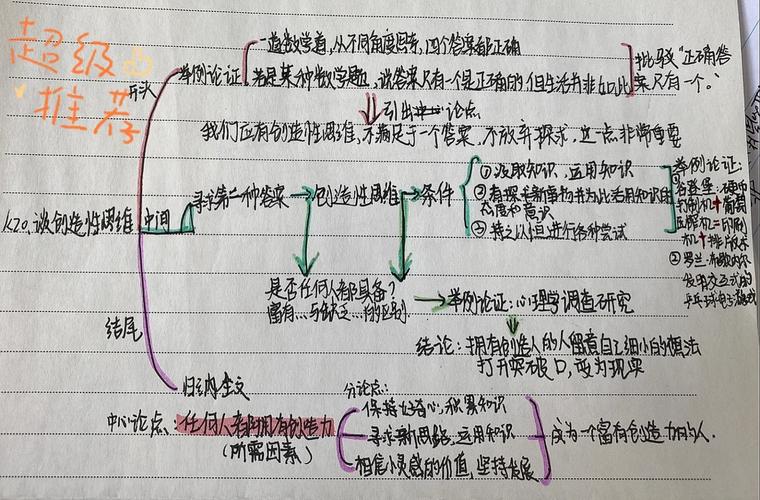 超级
推荐
K20、谈创造性思维
开头
举例论证
一道数学题，从不同角度思考，四个答案都正确
若是某种数学题，说答案只有一个是正确的，但生活并非如此
批驳“正确答案只有一个。”
引出 论点
我们应有创造性思维，不满足于一个答案，不放弃探求，这一点非常重要
中间
寻求第二种答案
创造性思维
条件
①汲取知识，运用知识
②有探求新事物并为此活用知识的
态度和意识
③持之以恒进行各种尝试
举例论证：
①谷登堡：硬币
打制机+葡萄
压榨机=印刷
机+排版技术
②罗兰·布歇内尔
发明交互式的
乒乓球电子游戏
是否任何人都具备？
富有…与缺乏…的区别
举例论证：心理学调查研究
结论：拥有创造力的人留意自己细小的想法
打开突破口，变为现实
结尾
归纳全文
中心论点：任何人都拥有创造力
（所需因素）
分论点：
保持好奇心，积累知识
寻求新思路，运用知识
相信小灵感的价值，坚持发展
成为一个富有创造力的人.